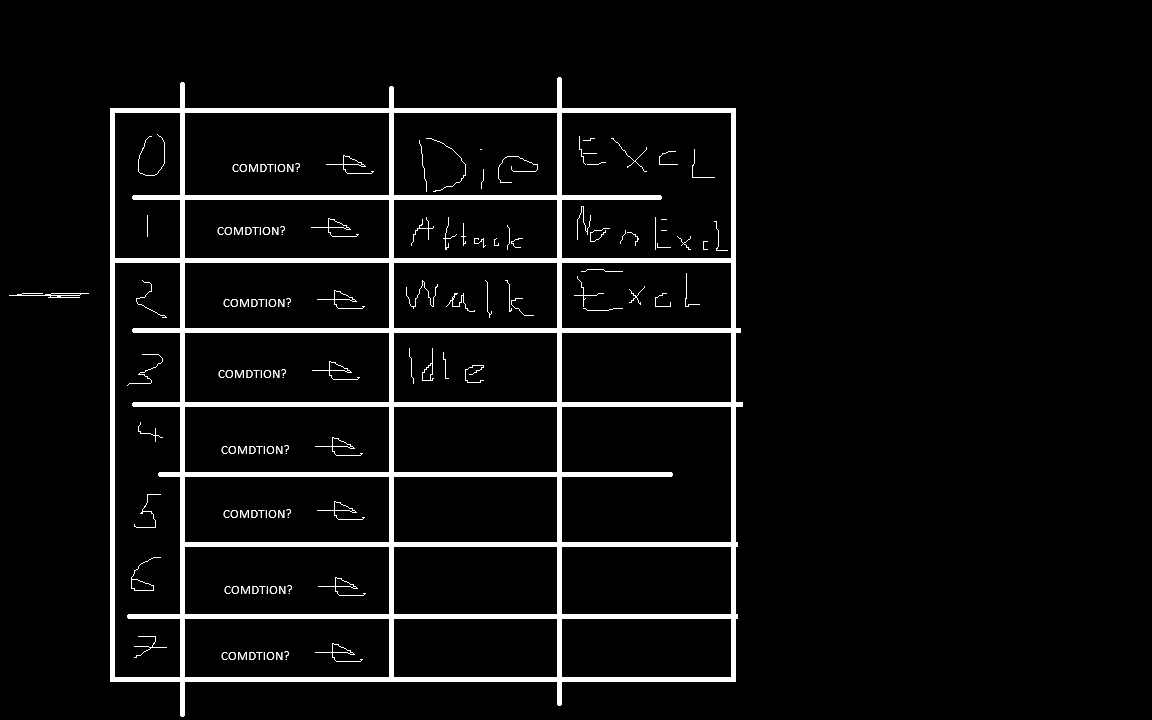 0 COMDTION? Die EXCL
1 COMDTION? Attack Non Excl
2 COMDTION? Walk Excl
3 COMDTION? Idle
4 COMDTION?
5 COMDTION?
6 COMDTION?
7 COMDTION?